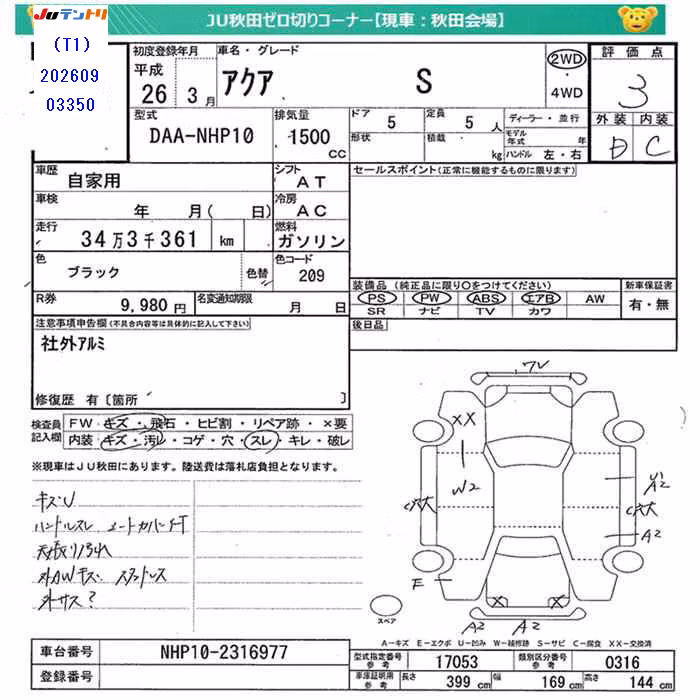 JUテントリ
JU秋田ゼロ切りコーナー【現車：秋田会場】
(T1)
202609
03350
初度登録年月
平成
26 3月
車名・グレード
アクア S
2WD
・
4WD
評価点
3
外装 内装
D C
型式
DAA-NHP10
排気量
1500
CC
ドア
5
形状
定員
5 人
積載
kg
ディーラー・並行
モデル
年式 年
ハンドル 左・右
車歴
自家用
シフト
AT
セールスポイント(正常に機能するものに限ります)
車検
年 月( 日)
冷房
AC
走行
34万3千361 km
燃料
ガソリン
色
ブラック
色替
色コード
209
装備品 (純正品に限り○をつけてください)
PS PW ABS エアB AW
SR ナビ TV カワ
新車保証書
有・無
R券
9,980円
名変通知期限
月 日
後日品
注意事項申告欄(不具合内容等は具体的に記入して下さい)
社外アルミ
修復歴 有〔箇所 〕
検査員
記入欄
FW・キズ・飛石・ヒビ割・リペア跡・×要
内装・キズ・汚レ・コゲ・穴・スレ・キレ・破レ
※現車はJU秋田にあります。陸送費は落札店負担となります。
キズU
ハンドルスレ
天張り汚れ
外AWキズ スタッドレス
外サス?
ワレ
XX
W2
U1
A2
C大
C大
A2
E
X X
A2 A2
スペア
A-キズ E-エクボ U-凹み W-補修跡 S-サビ C-腐食 XX-交換済
車台番号
NHP10-2316977
登録番号
型式指定番号
参考
17053
類別区分番号
参考
0316
車庫証明用
参考
長さ 399 cm 幅 169 cm 高さ 144 cm